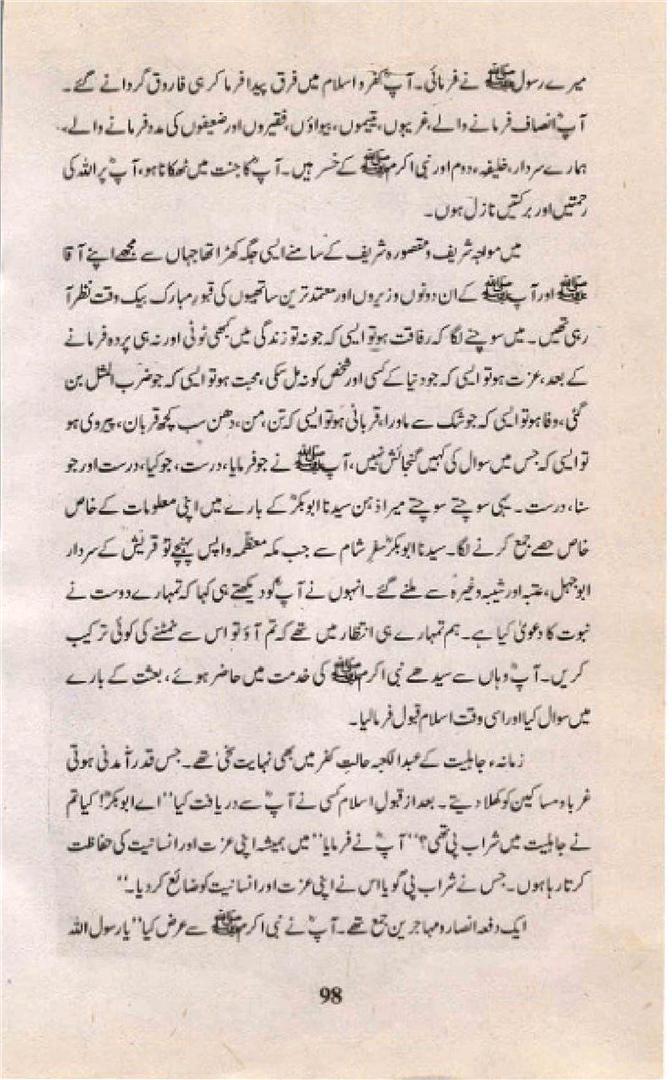 میرے رسول ﷺ نے فرمائی۔ آپؓ کفر و اسلام میں فرق پیدا فرما کر ہی فاروق گردانے گئے۔
آپؓ انصاف فرمانے والے، غریبوں، یتیموں، بیواؤں، فقیروں اور ضعیفوں کی مدد فرمانے والے،
ہمارے سردار، خلیفہء دوم اور نبی اکرم ﷺ کے خسر ہیں۔ آپؓ کا جنت میں ٹھکانا ہو، آپؓ پر اللہ کی
رحمتیں اور برکتیں نازل ہوں۔
میں مواجہ شریف و مقصورہ شریف کے سامنے ایسی جگہ کھڑا تھا جہاں سے مجھے اپنے آقا
ﷺ اور آپ ﷺ کے ان دونوں وزیروں اور معتمد ترین ساتھیوں کی قبور مبارک بیک وقت نظر آ
رہی تھیں۔ میں سوچنے لگا کہ رفاقت ہو تو ایسی کہ جو نہ تو زندگی میں کبھی ٹوٹی اور نہ ہی پردہ فرمانے
کے بعد، عزت ہو تو ایسی کہ جو دنیا کے کسی اور شخص کو نہ مل سکی، محبت ہو تو ایسی کہ جو ضرب المثل بن
گئی، وفا ہو تو ایسی کہ جو شک سے ماورا، قربانی ہو تو ایسی کہ تن، من، دھن سب کچھ قربان، پیروی ہو
تو ایسی کہ جس میں سوال کی کہیں گنجائش نہیں، آپ ﷺ نے جو فرمایا، درست، جو کیا، درست اور جو
سنا، درست۔ یہی سوچتے سوچتے میرا ذہن سیدنا ابوبکرؓ کے بارے میں اپنی معلومات کے خاص
خاص حصے جمع کرنے لگا۔ سیدنا ابوبکرؓ سفرِ شام سے جب مکہ معظمہ واپس پہنچے تو قریش کے سردار
ابوجہل، عتبہ اور شیبہ وغیرہ سے ملنے گئے۔ انہوں نے آپؓ کو دیکھتے ہی کہا کہ تمہارے دوست نے
نبوت کا دعویٰ کیا ہے۔ ہم تمہارے ہی انتظار میں تھے کہ تم آؤ تو اس سے نمٹنے کی کوئی ترکیب
کریں۔ آپؓ وہاں سے سیدھے نبی اکرم ﷺ کی خدمت میں حاضر ہوئے، بعثت کے بارے
میں سوال کیا اور اسی وقت اسلام قبول فرما لیا۔
زمانہء جاہلیت کے عبدالکعبہ حالتِ کفر میں بھی نہایت سخی تھے۔ جس قدر آمدنی ہوتی
غرباء و مساکین کو کھلا دیتے۔ بعد از قبولِ اسلام کسی نے آپؓ سے دریافت کیا ''اے ابوبکرؓ! کیا تم
نے جاہلیت میں شراب پی تھی؟'' آپؓ نے فرمایا ''میں ہمیشہ اپنی عزت اور انسانیت کی حفاظت
کرتا رہا ہوں۔ جس نے شراب پی گویا اس نے اپنی عزت اور انسانیت کو ضائع کر دیا۔''
ایک دفعہ انصار و مہاجرین جمع تھے۔ آپؓ نے نبی اکرم ﷺ سے عرض کیا ''یا رسول اللہ
98